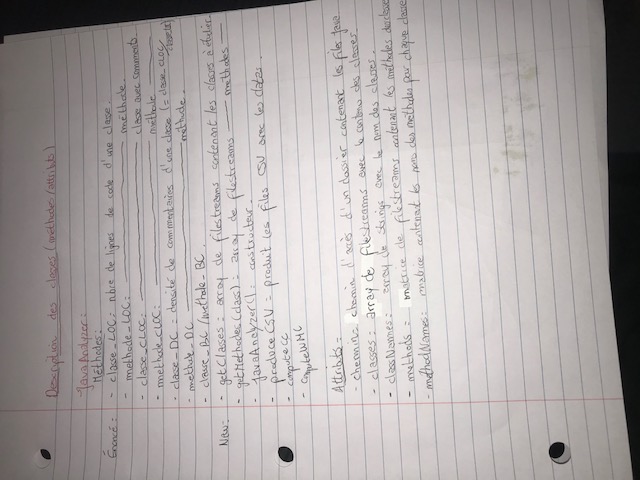 Description des classes (méthodes/attributs)
JavaAnalyzer:
Méthodes:
Énoncé: - classe_LOC: nbre de lignes de code d'une classe.
- methode_LOC: ———— méthode.
- classe_CLOC: ———— classe avec comments.
- methode_CLOC: ———— méthode ————
- classe_DC = densité de commentaires d'une classe (= classe_CLOC/classe_LOC)
- methode_DC ———— méthode.
- classe_BC / methode_BC.
New: - getClasses: array de filestreams contenant les classes à étudier.
- getMethodes(class): array de filestreams —— methodes ——
- JavaAnalyzer(): constructeur.
- produceCSV = produit les files CSV avec les datas.
- computeCC
- computeWMC
Attributs:
- chemin: chemin d'accès d'un dossier contenant les files java
- classes: array de filestreams avec le contenu des classes.
- classNames: array de strings avec le nom des classes.
- methods: matrice de filestreams contenant les méthodes des classes
- methodNames: matrice contenant les noms des méthodes par chaque classe